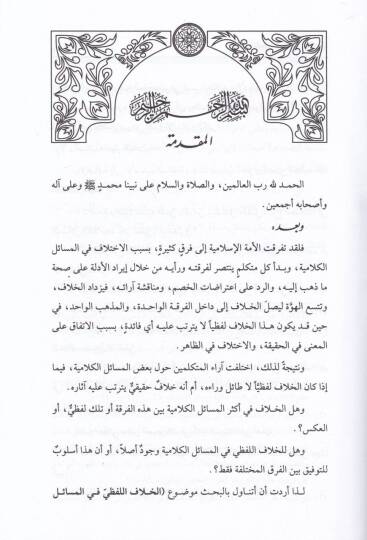 بسم الله الرحمن الرحيم
المقدمة
الحمد لله رب العالمين، والصلاة والسلام على نبينا محمدٍ ﷺ وعلى آله
وأصحابه أجمعين.
وبعد،
فلقد تفرقت الأمة الإسلامية إلى فرقٍ كثيرةٍ، بسبب الاختلاف في المسائل
الكلامية، وبدأ كل متكلم ينتصر لفرقته ورأيه من خلال إيراد الأدلة على صحة
ما ذهب إليه، والرد على اعتراضات الخصم، ومناقشة آرائه، فيزداد الخلاف،
وتتسع الهوَّة ليصل الخلاف إلى داخل الفرقة الواحدة، والمذهب الواحد، في
حين قد يكون هذا الخلاف لفظياً لا يترتب عليه أي فائدةٍ، بسبب الاتفاق على
المعنى في الحقيقة، والاختلاف في الظاهر.
ونتيجةً لذلك، اختلفت آراء المتكلمين حول بعض المسائل الكلامية، فيما
إذا كان الخلاف لفظيّاً لا طائل وراءه، أم أنه خلافٌ حقيقيٌّ يترتب عليه آثاره.
وهل الخلاف في أكثر المسائل الكلامية بين هذه الفرقة أو تلك لفظيٌّ، أو
العكس؟.
وهل للخلاف اللفظي في المسائل الكلامية وجودٌ أصلاً، أو أن هذا أسلوبٌ
للتوفيق بين الفرق المختلفة فقط؟.
لذا أردت أن أتناول بالبحث موضوع (الخلاف اللفظيّ في المسائل